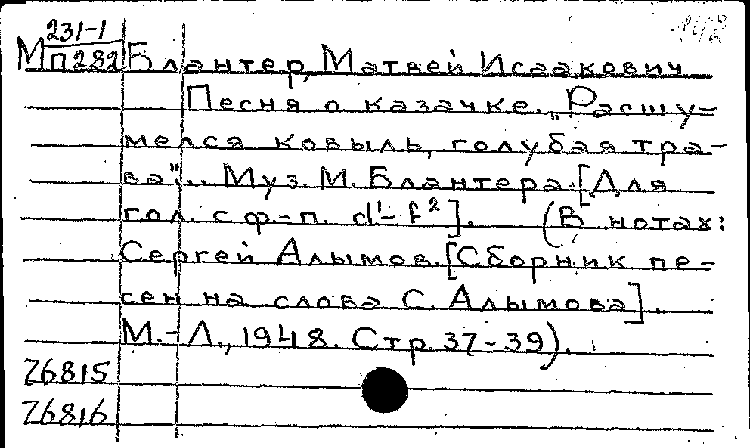 231-1
М П282 Блантер, Матвей Исаакович
Песня о казачке. „Расшу-
мелся ковыль, голубая тра-
ва"... Муз. М. Блантера. [Для
гол. с ф-п. d¹-f²]. (В нотах:
Сергей Алымов. [Сборник пе-
сен на слова С. Алымова].
М.-Л., 1948. Стр. 37-39).
Z6815
Z6816